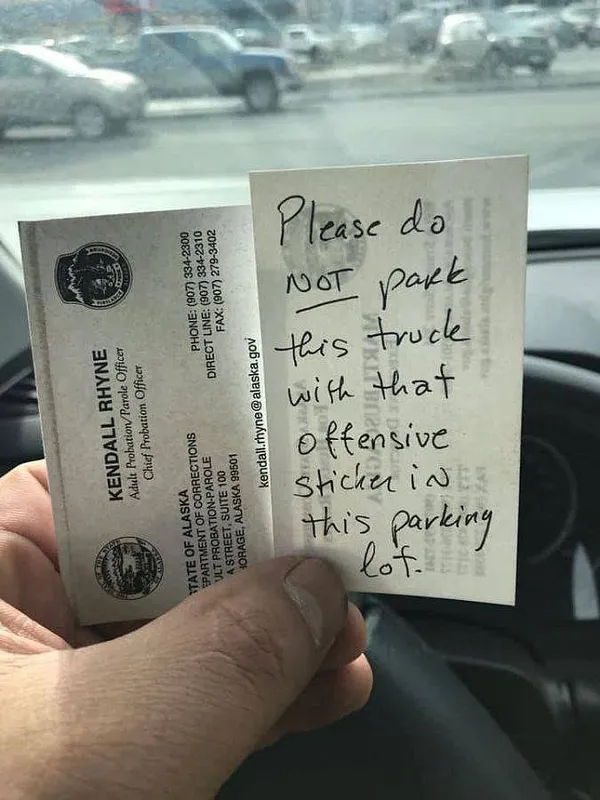 KENDALL RHYNE
Adult Probation/Parole Officer
Chief Probation Officer
STATE OF ALASKA
PARTMENT OF CORRECTIONS
ULT PROBATION-PAROLE
A STREET, SUITE 100
ORAGE, ALASKA 99501
PHONE: (907) 334-2300
DIRECT LINE: (907) 334-2310
FAX: (907) 279-3402
kendall.rhyne@alaska.gov
Please do
NOT park
this truck
with that
offensive
sticker in
this parking
lot.